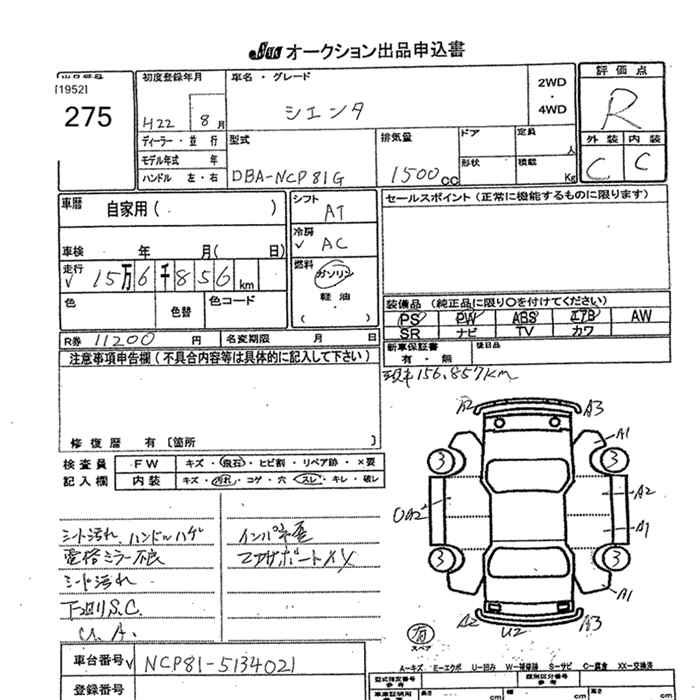 JUS オークション出品申込書
出品番号
[1952]
275
初度登録年月
H22 8月
車名・グレード
シエンタ
2WD
・
4WD
評価点
R
外装 内装
C C
ディーラー・並行
モデル年式 年
ハンドル 左・右
型式
DBA-NCP81G
排気量
1500cc
ドア
定員
人
形状
積載
Kg
車歴
自家用( )
車検 年 月( 日)
走行
✓ 15万6千856km
色
色替
色コード
シフト
AT
冷房
✓ AC
燃料
ガソリン
軽油
( )
セールスポイント(正常に機能するものに限ります)
装備品(純正品に限り○を付けてください)
PS PW ABS エアB AW
SR ナビ TV カワ
R券 11200円
名変期限 月 日
新車保証書
有・無
後日品
注意事項申告欄(不具合内容等は具体的に記入して下さい)
現車156,857km
修復歴 有〔箇所 〕
検査員
記入欄
FW キズ・飛石・ヒビ割・リペア跡・×要
内装 キズ・汚れ・コゲ・穴・スレ・キレ・破レ
シート汚れ ハンドルハゲ
電格ミラー不良
シート汚れ
下廻りS.C.
U.A.
インパネ歪
コアサポートXX
A2 A3
A1
3 3
A2
UA2
A1
3 3
A1
A2 U2 A3
有
スペア
A=キズ E=エクボ U=凹み W=補修跡 S=サビ C=腐食 XX=交換済
車台番号 ✓ NCP81-5134021
登録番号
型式指定番号
類別区分番号
長さ
幅
高さ